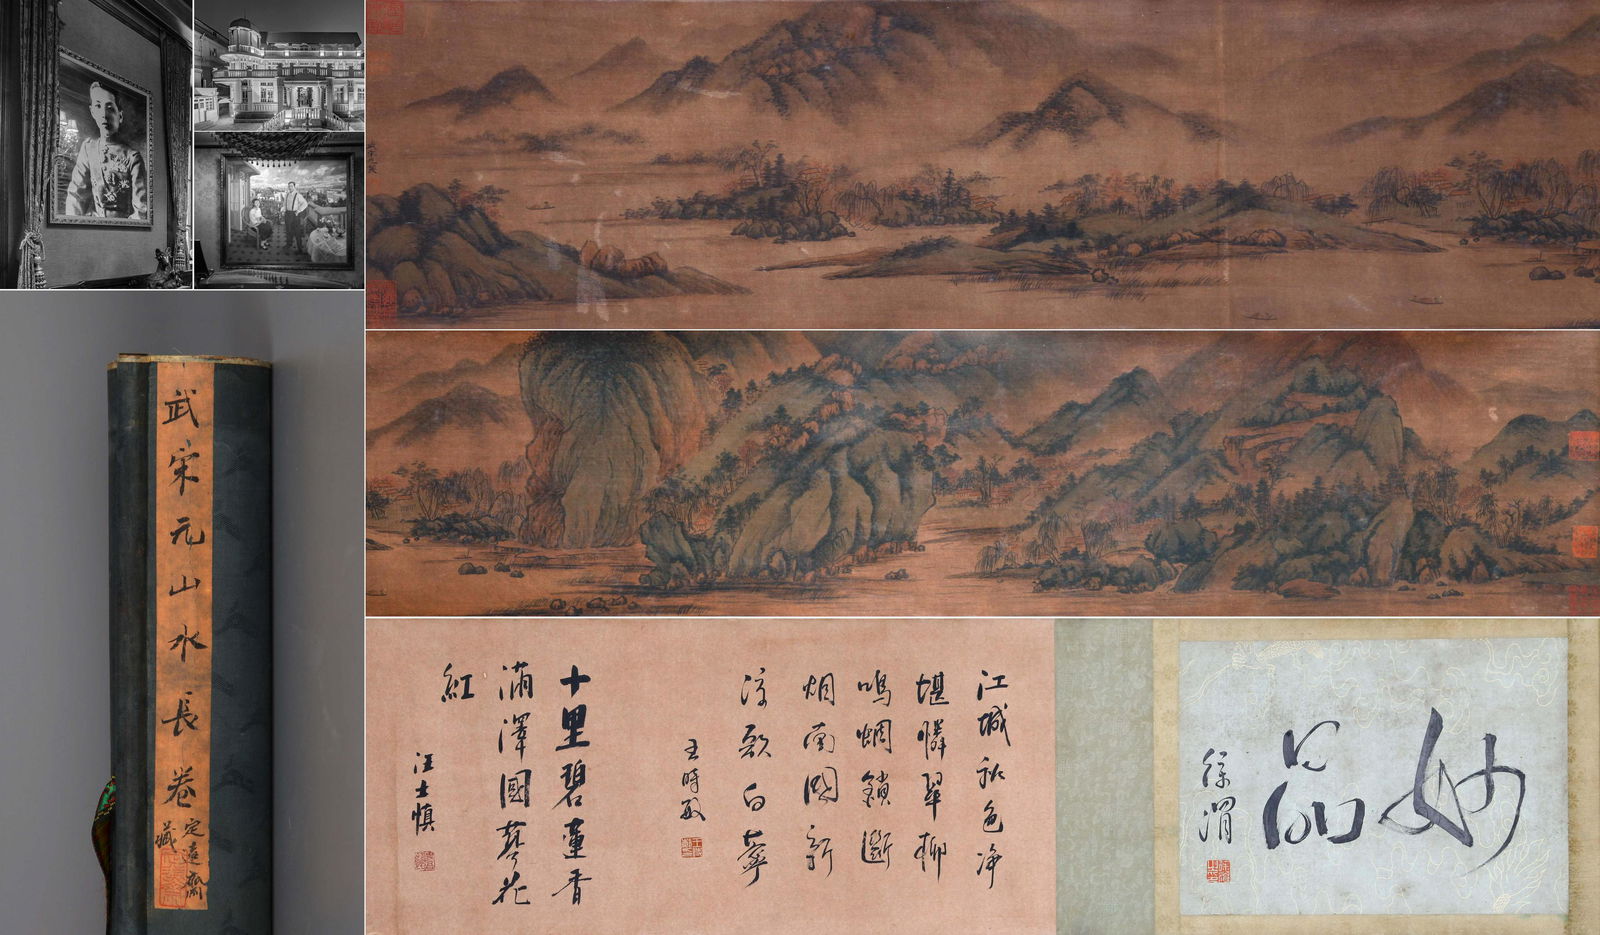 武宋元山水長卷
定遠齋
藏
妙品
徐渭
江城秋色净
堪憐翠柳
鳴蜩鎖斷
烟南國新
涼歌白蘋
王時敏
十里碧蓮香
滿澤國蓼花
紅
汪士慎